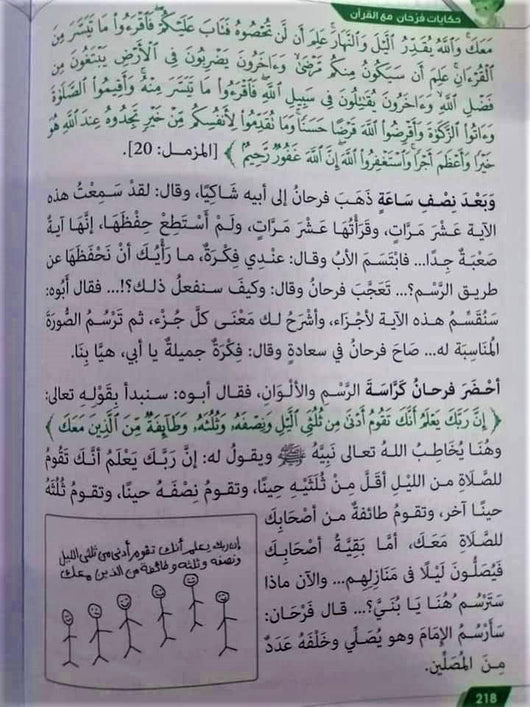 حكايات فرحان مع القرآن
مَعَكَ وَٱللَّهُ يُقَدِّرُ ٱلَّيۡلَ وَٱلنَّهَارَ عَلِمَ أَن لَّن تُحۡصُوهُ فَتَابَ عَلَيۡكُمۡ فَٱقۡرَءُواْ مَا تَيَسَّرَ مِنَ
ٱلۡقُرۡءَانِ عَلِمَ أَن سَيَكُونُ مِنكُم مَّرۡضَىٰ وَءَاخَرُونَ يَضۡرِبُونَ فِي ٱلۡأَرۡضِ يَبۡتَغُونَ مِن
فَضۡلِ ٱللَّهِ وَءَاخَرُونَ يُقَٰتِلُونَ فِي سَبِيلِ ٱللَّهِ فَٱقۡرَءُواْ مَا تَيَسَّرَ مِنۡهُ وَأَقِيمُواْ ٱلصَّلَوٰةَ
وَءَاتُواْ ٱلزَّكَوٰةَ وَأَقۡرِضُواْ ٱللَّهَ قَرۡضًا حَسَنٗا وَمَا تُقَدِّمُواْ لِأَنفُسِكُم مِّنۡ خَيۡرٖ تَجِدُوهُ عِندَ ٱللَّهِ هُوَ
خَيۡرٗا وَأَعۡظَمَ أَجۡرٗا وَٱسۡتَغۡفِرُواْ ٱللَّهَ إِنَّ ٱللَّهَ غَفُورٞ رَّحِيمٞ ﴾ [المزمل: 20].
وَبَعْدَ نِصْفِ سَاعَةٍ ذَهَبَ فَرحانُ إلى أبيه شَاكِيًا، وقال: لقدْ سَمِعْتُ هذه
الآية عَشْرَ مَرَّاتٍ، وقَرَأْتُها عَشْرَ مَرَّاتٍ، ولَمْ أَسْتَطِعْ حِفْظَهَا، إنَّها آيةٌ
صَعْبَةٌ جدًا... فابْتَسَمَ الأبُ وقالَ: عنْدِي فِكْرَةٌ، ما رَأْيُكَ أنْ نَحْفَظَهَا عن
طريق الرَّسْمِ؟... تَعَجَّبَ فرحانُ وقالَ: وكَيفَ سنفعلُ ذلك؟!... فقال أبُوه:
سَنُقَسِّمُ هذه الآية لأجْزَاء، وأشْرَحُ لك مَعْنَى كلِّ جُزْء، ثم تَرْسُمُ الصُّورَةَ
المُنَاسِبَةَ له... صَاحَ فرحانُ في سعادةٍ وقال: فِكْرَةٌ جميلةٌ يا أبي، هيَّا بِنَا.
أحْضَرَ فرحانُ كُرَّاسَةَ الرَّسْمِ والألْوَانِ، فقال أبوه: سنبدأ بِقَوْلِهِ تعالى:
﴿ إِنَّ رَبَّكَ يَعۡلَمُ أَنَّكَ تَقُومُ أَدۡنَىٰ مِن ثُلُثَيِ ٱلَّيۡلِ وَنِصۡفَهُۥ وَثُلُثَهُۥ وَطَآئِفَةٞ مِّنَ ٱلَّذِينَ مَعَكَ ﴾
وهُنَا يُخَاطِبُ اللهُ تعالى نَبِيَّهُ ﷺ ويقولُ له: إنَّ رَبَّكَ يَعْلَمُ أنَّكَ تَقُومُ
للصَّلاةِ من الليْلِ أقلَّ مِنْ ثُلُثَيْهِ حِينًا، وتقومُ نِصْفَهُ حينًا، وتقومُ ثُلُثَهُ
حينًا آخر، وتقومُ طائفةٌ من أصْحَابِكَ
للصَّلاةِ مَعَكَ، أمَّا بَقِيَّةُ أصْحَابِكَ
فَيُصَلُّونَ لَيْلًا في مَنَازِلِهِم... والآن ماذا
سَتَرْسُمُ هُنَا يا بُنَيَّ؟... قال فَرْحَان:
سَأَرْسُمُ الإِمَامَ وهو يُصَلِّي وخَلْفَهُ عَدَدٌ
مِنَ المُصَلِّين.
إن ربك يعلم أنك تقوم أدنى من ثلثي الليل
ونصفه وثلثه وطائفة من الذين معك
218